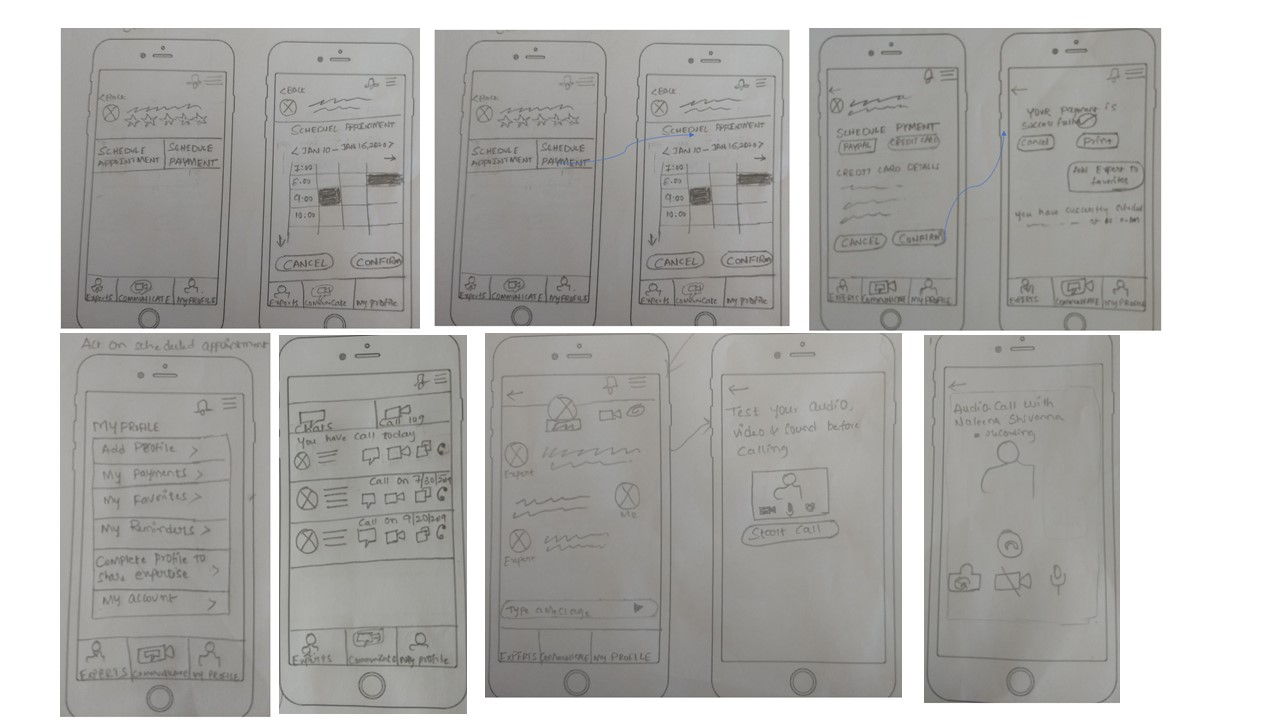 <BACK
SCHEDULE
APPOINTMENT
SCHEDULE
PAYMENT
Experts COMMUNICATE MY PROFILE
<BACK
SCHEDUEL APPOINTMENT
< JAN 10 - JAN 16, 2020 >
7:00
8:00
9:00
10:00
CANCEL CONFIRM
Experts Communicate My profile
<BACK
SCHEDULE
APPOINTMENT
SCHEDULE
PAYMENT
Experts COMMUNICATE MY PROFILE
<BACK
SCHEDUEL APPOINTMENT
< JAN 10 - JAN 16, 2020 >
7:00
8:00
9:00
10:00
CANCEL CONFIRM
Experts Communicate My profile
SCHEDULE PYMENT
PAYPAL CREDIT CARD
CREDIT CARD DETAILS
CANCEL CONFIRM
EXPERTS COMMUNICATE MY PROFILE
Your Payment is
successful
Cancel Print
Add Expert to
favorites
You have currently
EXPERTS COMMUNICATE MY PROFILE
Act on scheduled appointment
MY PROFILE
Add Profile >
My Payments >
My Favorites >
My Reminders >
Complete Profile to
share expertise >
My account >
EXPERTS COMMUNICATE MY PROFILE
Chats Call log
You have call today
Call on 7/30/2019
Call on 9/20/2019
Experts Communicate My profile
Expert
Me
Expert
Type a message
EXPERTS COMMUNICATE MY PROFILE
Test your audio,
video & sound before
calling
Start Call
Audio Call with
Naleena Shivanna
recording